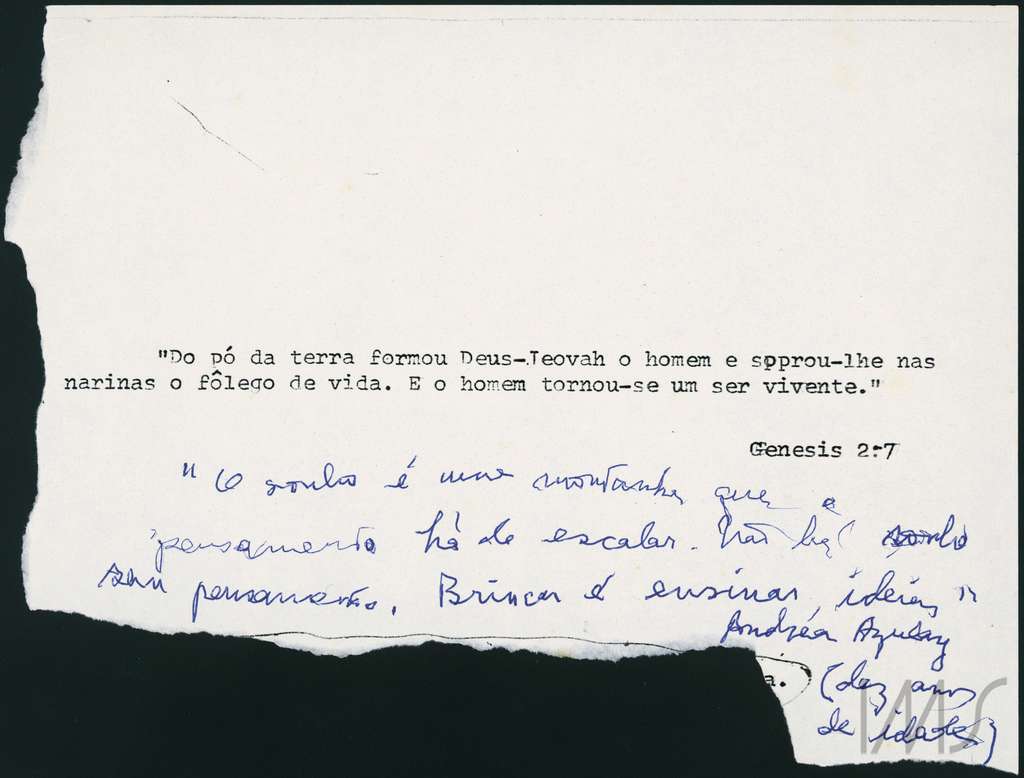 "Do pó da terra formou Deus-Jeovah o homem e soprou-lhe nas
narinas o fôlego de vida. E o homem tornou-se um ser vivente."
Genesis 2:7
"O sonho é uma montanha que o
pensamento há de escalar. Não há sonho
sem pensamento. Brincar é ensinar idéias"
Andréa Azulay
a. (dez anos
de idade)
IMS